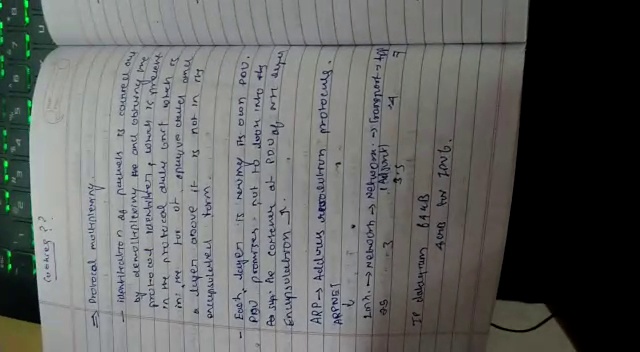 Cookies ??
⇒ Protocol multiplexing.
- Identification of packets is carried out
by demultiplexing the and obtaining the
protocol identifier, which is present
in the protocol data unit which is
in the
a layer above it is not in its
encapsulated form.
- Each layer is having its own PDU.
PDU promises not to look into
the content of PDU of layer
Encapsulation ↑.
ARP → Address resolution protocols.
ARPNET
Link → Network → Network → Transport → App
2.5 3 (Adjunct) 3.5 4 7
IP datagram 64KB
4GB for IPv6.